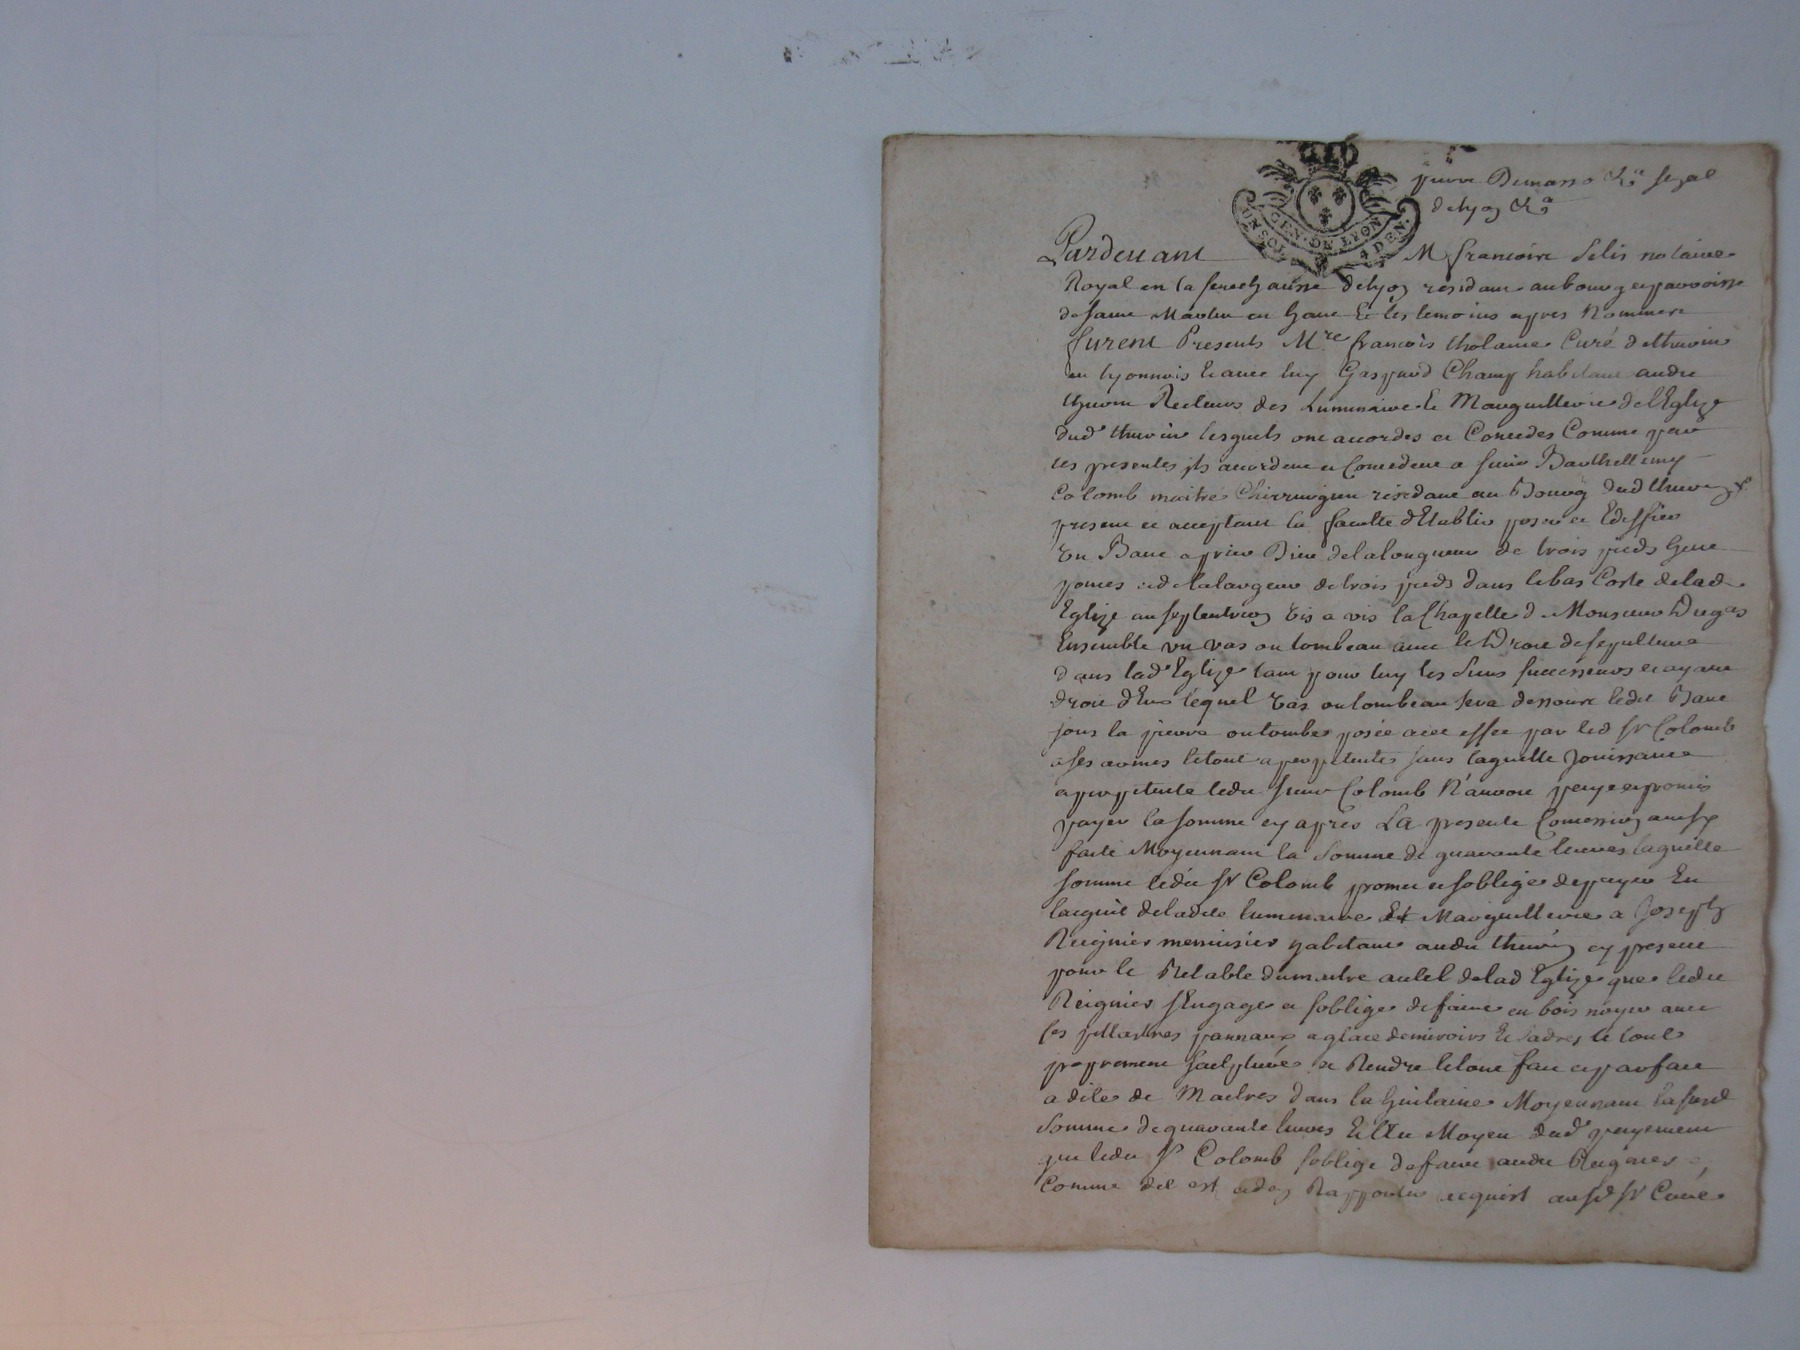 GEN. DE LYON
UN SOL 4 DEN.
de lyon
Pardevant M francoire delis notaire
Royal en la senechausse de lyon residant au bourg et parroisse
de saint Martin en haut Et les temoins apres Nommere
furent Presents Mre francois tholaine Curé de thurins
en lyonnois et avec luy Gaspard Champ habitant audit
thurin Recteurs des Luminaire et Marguillerie de l'Eglize
dud thurin lesquels ont accordes et Concedes Comme par
ces presentes ils accordent et Concedent a sieur Barthellemy
Colomb maitre Chirurgien residant au Bourg dud thurin
present et acceptant la faculte d'Etablir poser et Ediffier
Un Banc a prier Dieu de la longueur de trois pieds huit
pouces et de la largeur de trois pieds dans le bas Coste de lad
Eglize au septentrion vis a vis la Chapelle de Monsieur Dugas
Ensemble un vas ou tombeau avec le Droit de sepulture
dans lad Eglize tant pour luy les siens successeurs et ayant
droit d'Eux lequel vas ou tombeau sera dessoure ledit Banc
sous la pierre ou tombe posée a cet effet par led sr Colomb
a ses armes le tout a perpetuite sans laquelle Jouissance
a perpetuite ledit sieur Colomb N'auroit paye et promis
payer la somme cy apres La presente Concession ainsy
faite Moyennant la somme de quarante livres laquelle
somme ledit sr Colomb promet et s'oblige de payer En
lacquit de ladite luminaire Et Marguillerie a Joseph
Reignier menuisier habitant audit thurin cy present
pour le Retable du maitre autel de lad Eglize que ledit
Reignier s'Engage et s'oblige de faire en bois noyer avec
les pillastres pannaux a glace de miroirs Et Cadres le tout
proprement sculpturé et Rendre le tout fait et parfait
a dite de Maitres dans la huitaine Moyennant la susd
somme de quarante livres Et au Moyen dud payement
que ledit Sr Colomb s'oblige de faire audit Reignier
Comme dit est et den Rapporter acquist aud sr Curé